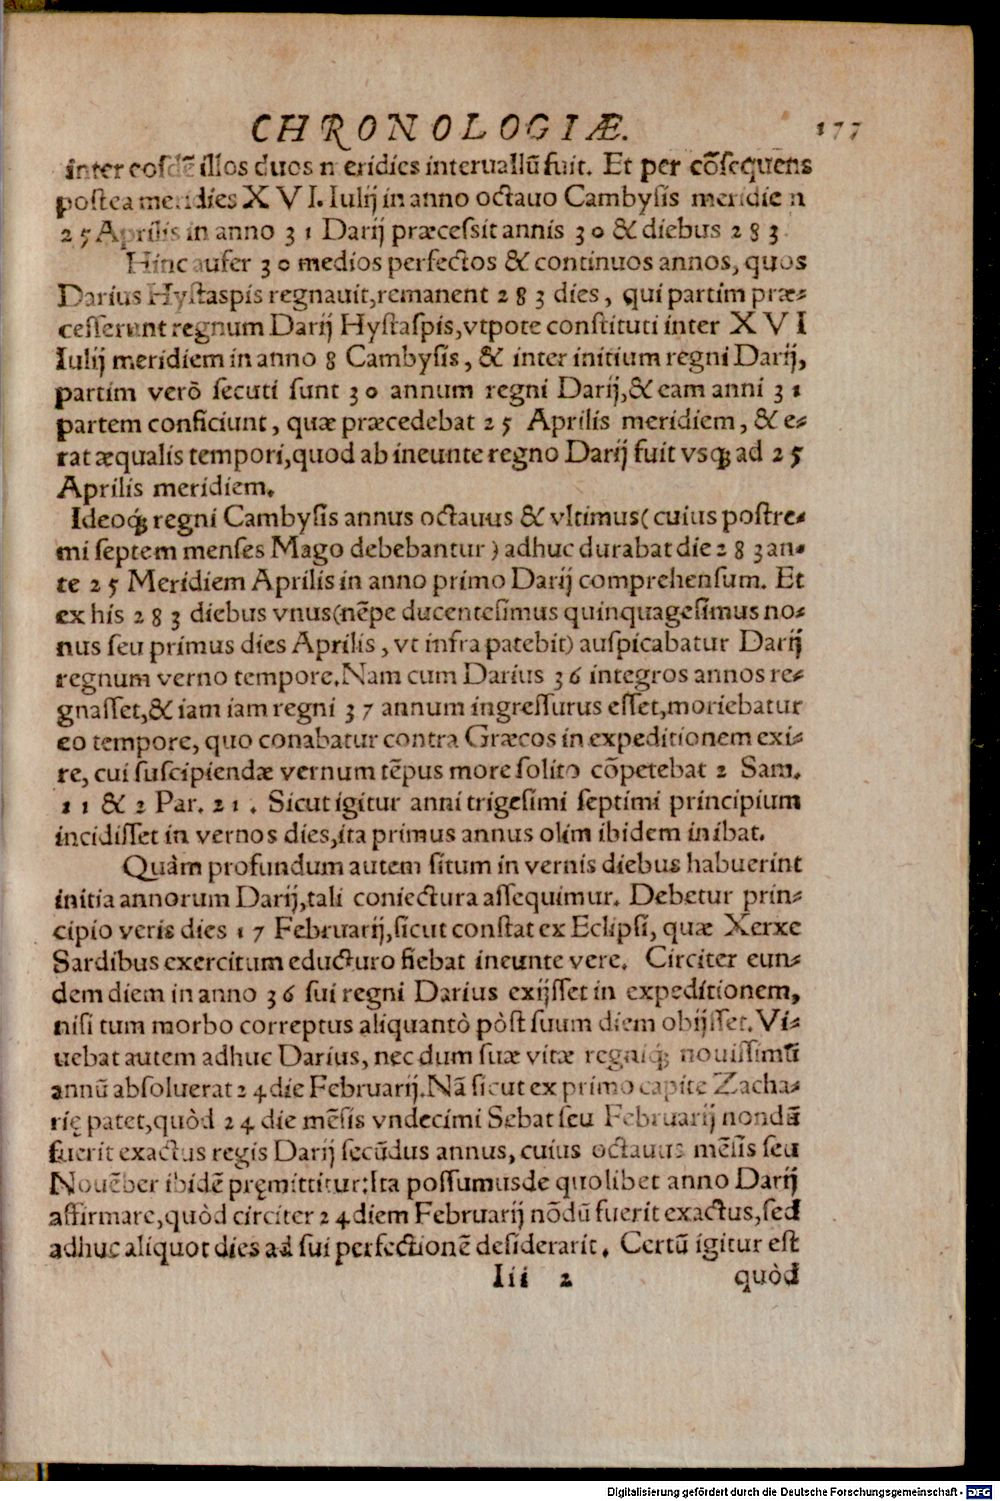 CHRONOLOGIÆ. 177
inter eosdē illos duos meridies interuallū fuit. Et per cōsequens
postea meridies XVI. Iulij in anno octauo Cambysis meridiem
25 Aprilis in anno 31 Darij præcessit annis 30 & diebus 283.
Hinc aufer 30 medios perfectos & continuos annos, quos
Darius Hystaspis regnauit, remanent 283 dies, qui partim præ-
cesserunt regnum Darij Hystaspis, vtpote constituti inter XVI
Iulij meridiem in anno 8 Cambysis, & inter initium regni Darij,
partim verò secuti sunt 30 annum regni Darij, & eam anni 31
partem conficiunt, quæ præcedebat 25 Aprilis meridiem, & e-
rat æqualis tempori, quod ab ineunte regno Darij fuit vsq; ad 25
Aprilis meridiem.
Ideoq; regni Cambysis annus octauus & vltimus (cuius postre-
mi septem menses Mago debebantur) adhuc durabat die 283 an-
te 25 Meridiem Aprilis in anno primo Darij comprehensum. Et
ex his 283 diebus vnus (nēpe ducentesimus quinquagesimus no-
nus seu primus dies Aprilis, vt infra patebit) auspicabatur Darij
regnum verno tempore. Nam cum Darius 36 integros annos re-
gnasset, & iam iam regni 37 annum ingressurus esset, moriebatur
eo tempore, quo conabatur contra Græcos in expeditionem exi-
re, cui suscipiendæ vernum tēpus more solito cōpetebat 2 Sam.
11 & 2 Par. 21. Sicut igitur anni trigesimi septimi principium
incidisset in vernos dies, ita primus annus olim ibidem inibat.
Quàm profundum autem situm in vernis diebus habuerint
initia annorum Darij, tali coniectura assequimur. Debetur prin-
cipio veris dies 17 Februarij, sicut constat ex Eclipsi, quæ Xerxe
Sardibus exercitum educturo fiebat ineunte vere. Circiter eun-
dem diem in anno 36 sui regni Darius exijsset in expeditionem,
nisi tum morbo correptus aliquantò pòst suum diem obijsset. Vi-
uebat autem adhuc Darius, nec dum suæ vitæ regniq; nouissimū
annū absoluerat 24 die Februarij. Nā sicut ex primo capite Zacha-
rię patet, quòd 24 die mēsis vndecimi Sebat seu Februarij nondū
fuerit exactus regis Darij secūdus annus, cuius octauus mēsis seu
Nouēber ibidē pręmittitur: Ita possumus de quolibet anno Darij
affirmare, quòd circiter 24 diem Februarij nōdū fuerit exactus, sed
adhuc aliquot dies ad sui perfectionē desiderarit. Certū igitur est
Iii 2 quòd
Digitalisierung gefördert durch die Deutsche Forschungsgemeinschaft - DFG